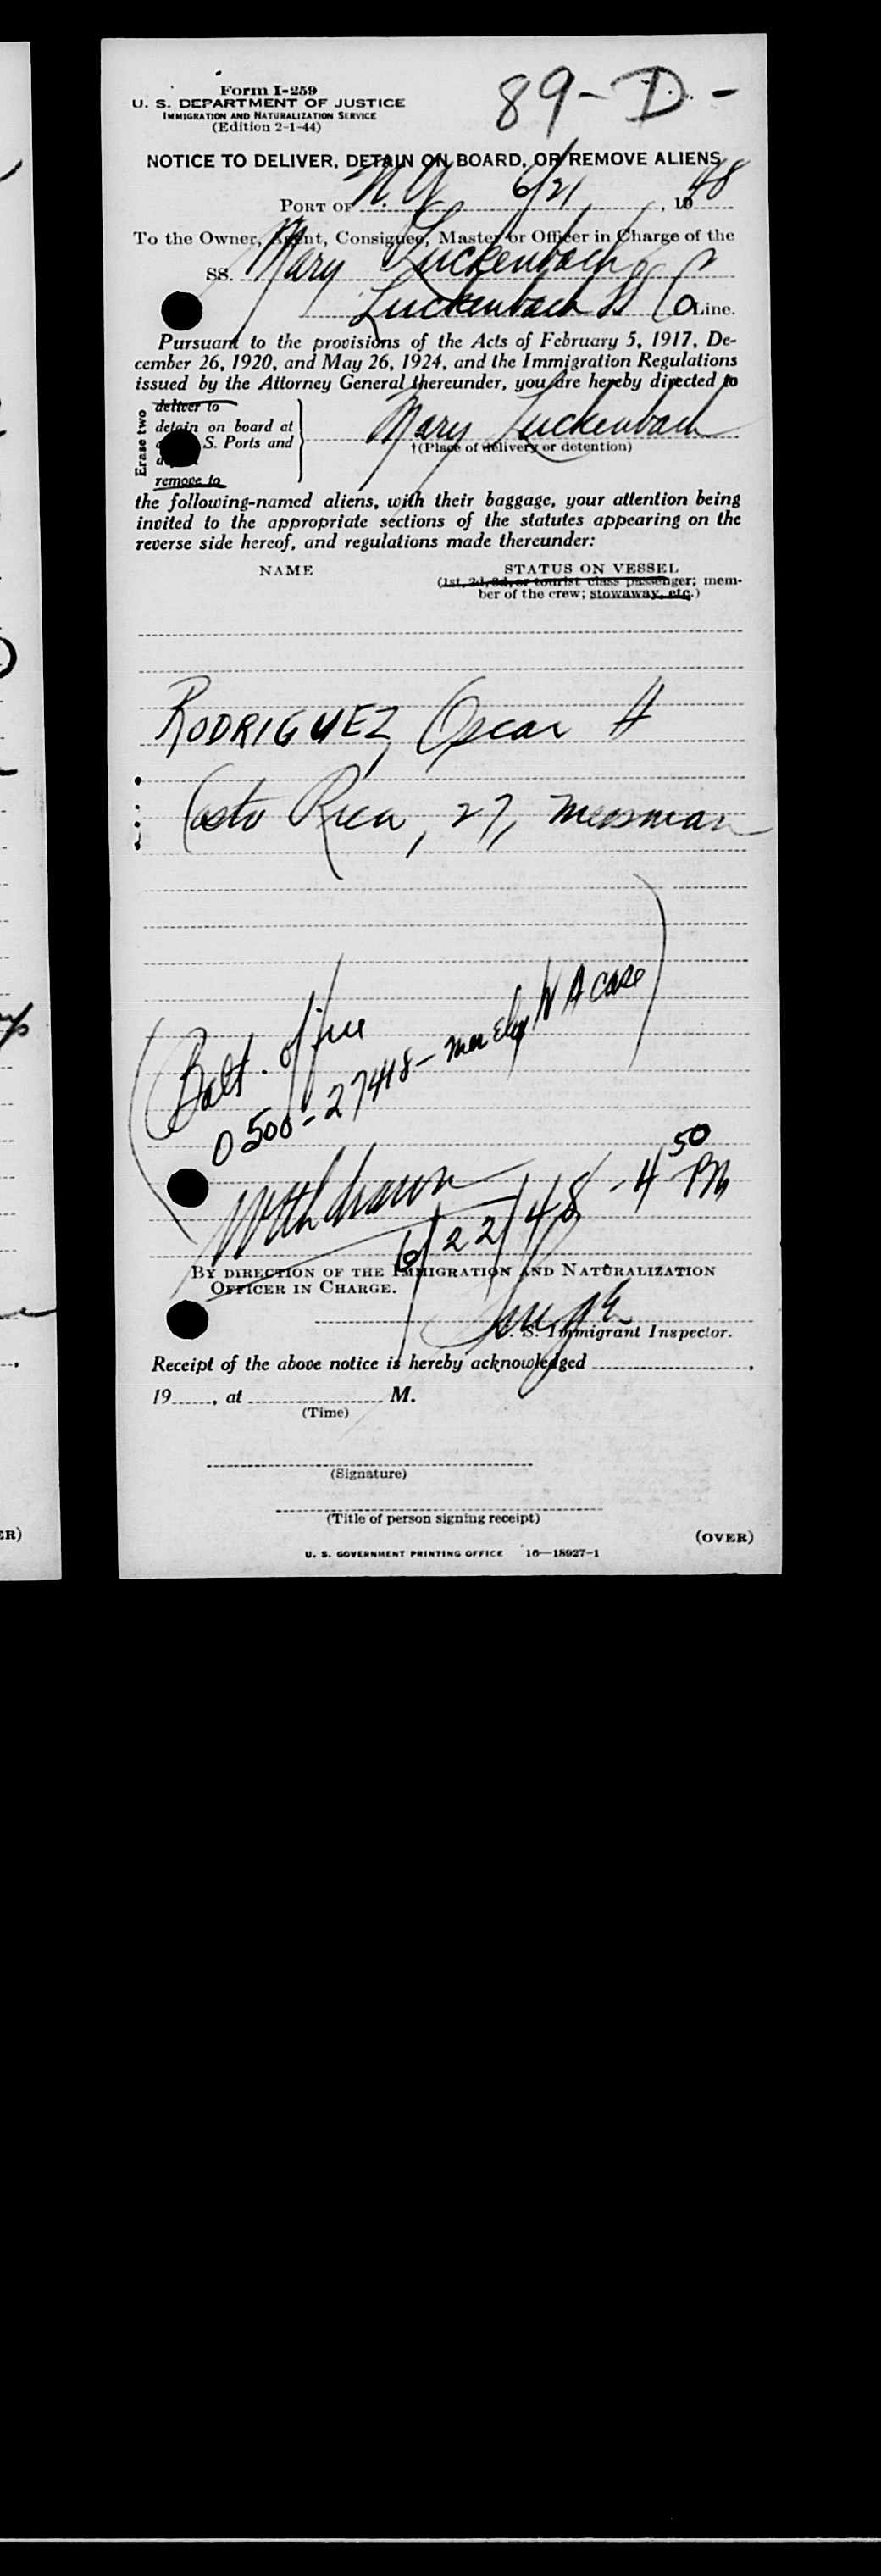 89-D-
Form I-259
U. S. DEPARTMENT OF JUSTICE
IMMIGRATION AND NATURALIZATION SERVICE
(Edition 2-1-44)
NOTICE TO DELIVER, DETAIN ON BOARD, OR REMOVE ALIENS
PORT OF N.Y. 6/21, 1948
To the Owner, Agent, Consignee, Master or Officer in Charge of the
SS. Mary Luckenbach
Luckenbach SS Co Line.
Pursuant to the provisions of the Acts of February 5, 1917, De-
cember 26, 1920, and May 26, 1924, and the Immigration Regulations
issued by the Attorney General thereunder, you are hereby directed to
Erase two
deliver to
detain on board at
S. Ports and
remove to
Mary Luckenbach
†(Place of delivery or detention)
the following-named aliens, with their baggage, your attention being
invited to the appropriate sections of the statutes appearing on the
reverse side hereof, and regulations made thereunder:
NAME STATUS ON VESSEL
(1st, 2d, 3d, or tourist class passenger; mem-
ber of the crew; stowaway, etc.)
RODRIGUEZ, Oscar A
Costa Rica, 27, messman
(Balt. office
0500-27418- merely W A case)
Withdrawn
6/22/48 - 4 50 PM
BY DIRECTION OF THE IMMIGRATION AND NATURALIZATION
OFFICER IN CHARGE.
U. S. Immigrant Inspector.
Receipt of the above notice is hereby acknowledged
19......, at M.
(Time)
(Signature)
(Title of person signing receipt)
(OVER)
U. S. GOVERNMENT PRINTING OFFICE 16—18927-1
ER)